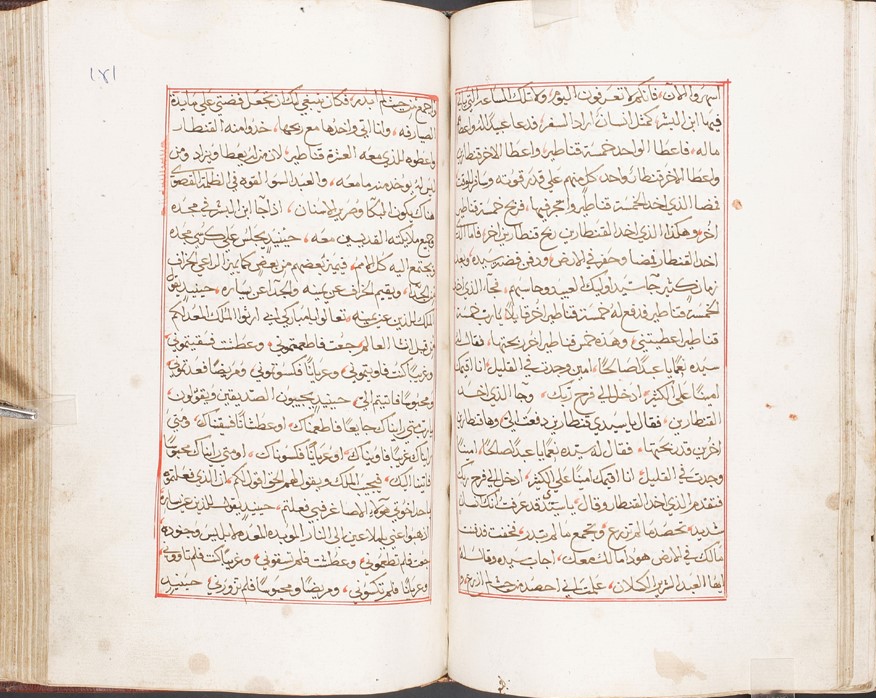 اسهروا الان فانكم لا تعرفون اليوم ولا تلك الساعة التي ياتي
فيها ابن البشر كمثل انسان اراد السفر فدعا عبيده واعطاهم
ماله فاعطا الواحد خمسة قناطير واعطا الاخر قنطارين
واعطا الاخر قنطار واحد كل منهم على قدر قوته وسافر للوقت
فمضا الذي اخد الخمسة قناطير واتجر فيها فربح خمسة قناطير
اخر وهكذا الذي اخد القنطارين ربح قنطارين اخر فاما الذي
اخد القنطار فمضا وحفر في الارض ودفن فضة سيده وبعد
زمان كثير جا سيد اوليك العبيد وحاسبهم فجا الذي اخد
الخمسة قناطير فدفع له خمسة قناطير اخر قايلا يا رب خمسة
قناطير اعطيتني وهذه خمس قناطير اخر ربحتها فقال له
سيده نعما يا عبدا صالحا امين وجدت في القليل انا اقيمك
امينا على الكثير ادخل الى فرح ربك وجا الذي اخد
القنطارين فقال يا سيدي قنطارين دفعت لي وها قنطارين
اخرين قد ربحتها فقال له سيده نعما يا عبدا صالحا امينا
وجدت في القليل انا اقيمك امينا على الكثير ادخل الى فرح ربك
فتقدم الذي اخد القنطار وقال يا سيدي قد عرفت انك انسان
شديد تحصد ما لم تزرع وتجمع ما لم تبدر فخفت فدفنت
مالك في الارض هوذا مالك معك اجاب سيده وقال له
ايها العبد الشرير الكسلان علمت اني احصد من حيث لم ازرع
واجمع من حيث لم ابدر فكان ينبغي لك ان تجعل فضتي على مايدة
الصيارفه وانا اتي واخدها مع ربحها خدوا منه القنطار
واعطوه للذي معه العشرة قناطير لان من له يعطا ويزاد ومن
ليس له يوخد منه ما معه والعبد السو القوه في الظلمة القصوى
هناك يكون البكا وصرير الاسنان اذا جا ابن البشر في مجده
وجميع ملايكته القديسين معه حينيد يجلس على كرسي مجده
ويجتمع اليه كل الامم فيميز بعضهم من بعض كما يميز الراعي الخراف
من الجدا ويقيم الخراف عن يمينه والجدا عن يساره حينيد يقول
الملك للذين عن يمينه تعالوا يا مباركي ابي ارثوا الملك المعد لكم
من قبل انشا العالم جعت فاطعمتموني وعطشت فسقيتموني
وغريبا كنت فاويتموني وعريانا فكسوتموني ومريضا فعدتموني
ومحبوسا فاتيتم الي حينيد يجيبون الصديقين ويقولون
يا رب متى رايناك جايعا فاطعمناك او عطشانا فسقيناك ومتى
رايناك غريبا فاويناك او عريانا فكسوناك او متى رايناك محبوسا
فاتينا اليك فيجيب الملك ويقول لهم الحق اقول لكم ان الذي فعلتموه
باحد اخوتي هولاي الاصاغر فبي فعلتم حينيد يقول للذين عن يساره
ادهبوا عني يا ملاعين الى النار الموبده المعده لابليس وجنوده
جعت فلم تطعموني وعطشت فلم تسقوني وغريبا كنت فلم تاووني
وعريانا فلم تكسوني ومريضا ومحبوسا فلم تزوروني حينيد